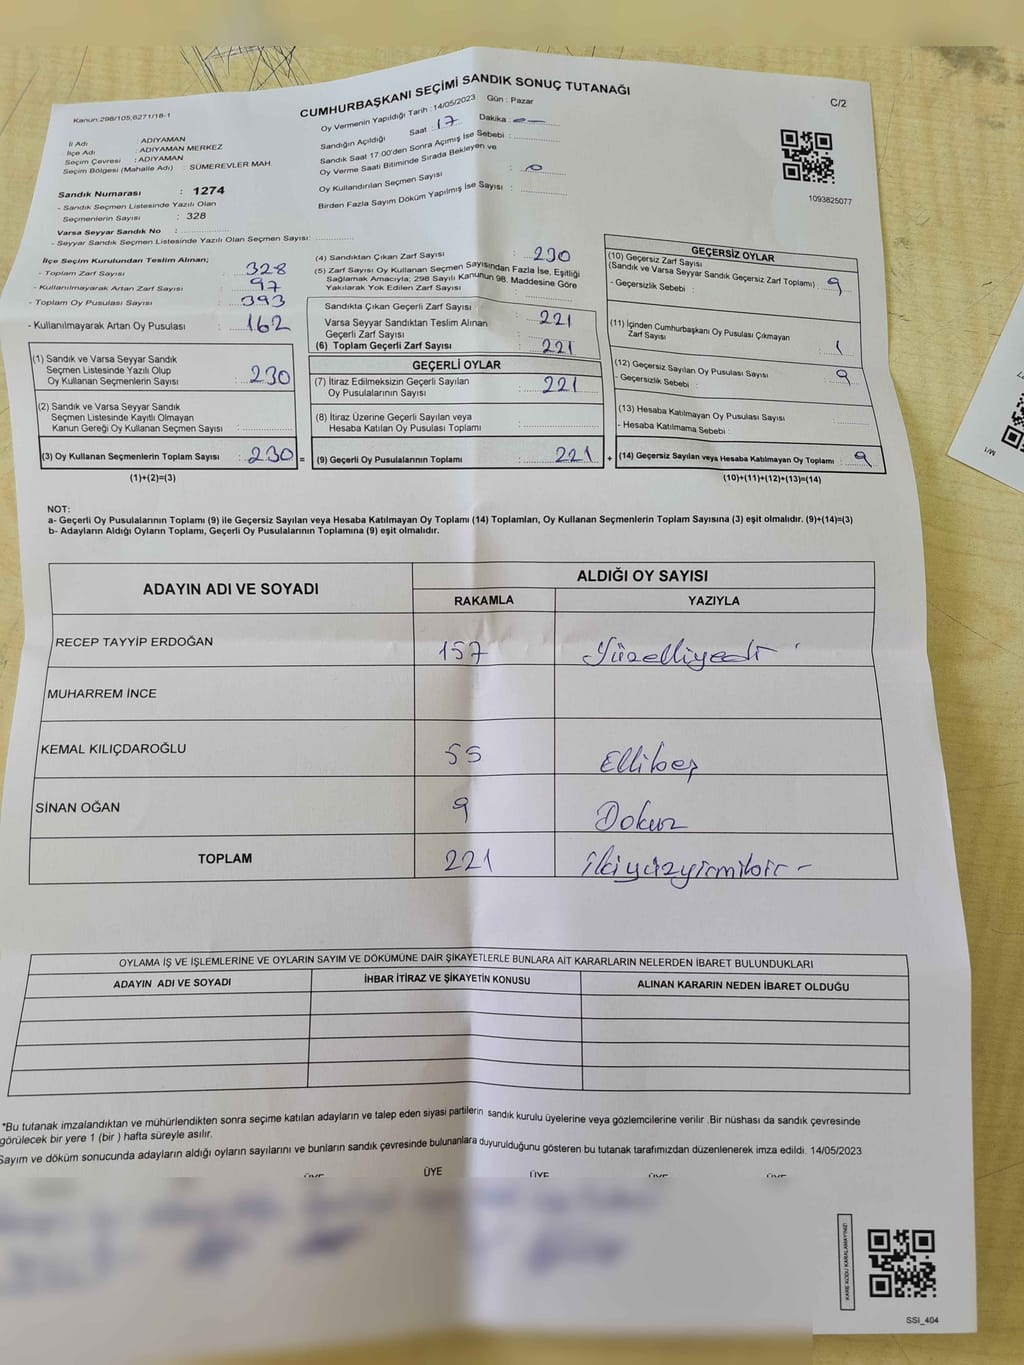 CUMHURBAŞKANI SEÇİMİ SANDIK SONUÇ TUTANAĞI
C/2
Kanun:298/105,6271/18-1
Oy Vermenin Yapıldığı Tarih : 14/05/2023 Gün : Pazar
İl Adı : ADIYAMAN
İlçe Adı : ADIYAMAN MERKEZ
Seçim Çevresi : ADIYAMAN
Seçim Bölgesi (Mahalle Adı) : SÜMEREVLER MAH.
Sandık Numarası : 1274
- Sandık Seçmen Listesinde Yazılı Olan
Seçmenlerin Sayısı : 328
Varsa Seyyar Sandık No :
- Seyyar Sandık Seçmen Listesinde Yazılı Olan Seçmen Sayısı:
Sandığın Açıldığı Saat : 17 Dakika :
Sandık Saat 17:00'den Sonra Açımış İse Sebebi :
Oy Verme Saati Bitiminde Sırada Bekleyen ve
Oy Kullandırılan Seçmen Sayısı : 0
Birden Fazla Sayım Döküm Yapılmış İse Sayısı :
1093825077
İlçe Seçim Kurulundan Teslim Alınan;
- Toplam Zarf Sayısı : 328
- Kullanılmayarak Artan Zarf Sayısı : 97
- Toplam Oy Pusulası Sayısı : 393
- Kullanılmayarak Artan Oy Pusulası : 162
(1) Sandık ve Varsa Seyyar Sandık
Seçmen Listesinde Yazılı Olup
Oy Kullanan Seçmenlerin Sayısı : 230
(2) Sandık ve Varsa Seyyar Sandık
Seçmen Listesinde Kayıtlı Olmayan
Kanun Gereği Oy Kullanan Seçmen Sayısı :
(3) Oy Kullanan Seçmenlerin Toplam Sayısı : 230 =
(1)+(2)=(3)
(4) Sandıktan Çıkan Zarf Sayısı : 230
(5) Zarf Sayısı Oy Kullanan Seçmen Sayısından Fazla İse, Eşitliği
Sağlamak Amacıyla; 298 Sayılı Kanunun 98. Maddesine Göre
Yakılarak Yok Edilen Zarf Sayısı :
Sandıkta Çıkan Geçerli Zarf Sayısı : 221
Varsa Seyyar Sandıktan Teslim Alınan
Geçerli Zarf Sayısı :
(6) Toplam Geçerli Zarf Sayısı : 221
GEÇERLİ OYLAR
(7) İtiraz Edilmeksizin Geçerli Sayılan
Oy Pusulalarının Sayısı : 221
(8) İtiraz Üzerine Geçerli Sayılan veya
Hesaba Katılan Oy Pusulası Toplamı :
(9) Geçerli Oy Pusulalarının Toplamı : 221 +
GEÇERSİZ OYLAR
(10) Geçersiz Zarf Sayısı
(Sandık ve Varsa Seyyar Sandık Geçersiz Zarf Toplamı) : 9
- Geçersizlik Sebebi :
(11) İçinden Cumhurbaşkanı Oy Pusulası Çıkmayan
Zarf Sayısı :
(12) Geçersiz Sayılan Oy Pusulası Sayısı : 9
- Geçersizlik Sebebi :
(13) Hesaba Katılmayan Oy Pusulası Sayısı
- Hesaba Katılmama Sebebi :
(14) Geçersiz Sayılan veya Hesaba Katılmayan Oy Toplamı : 9
(10)+(11)+(12)+(13)=(14)
NOT:
a- Geçerli Oy Pusulalarının Toplamı (9) ile Geçersiz Sayılan veya Hesaba Katılmayan Oy Toplamı (14) Toplamları, Oy Kullanan Seçmenlerin Toplam Sayısına (3) eşit olmalıdır. (9)+(14)=(3)
b- Adayların Aldığı Oyların Toplamı, Geçerli Oy Pusulalarının Toplamına (9) eşit olmalıdır.
ADAYIN ADI VE SOYADI
ALDIĞI OY SAYISI
RAKAMLA YAZIYLA
RECEP TAYYİP ERDOĞAN 157 Yüzelliyedi
MUHARREM İNCE
KEMAL KILIÇDAROĞLU 55 Ellibeş
SİNAN OĞAN 9 Dokuz
TOPLAM 221 ikiyüzyirmibir -
OYLAMA İŞ VE İŞLEMLERİNE VE OYLARIN SAYIM VE DÖKÜMÜNE DAİR ŞİKAYETLERLE BUNLARA AİT KARARLARIN NELERDEN İBARET BULUNDUKLARI
ADAYIN ADI VE SOYADI İHBAR İTİRAZ VE ŞİKAYETİN KONUSU ALINAN KARARIN NEDEN İBARET OLDUĞU
*Bu tutanak imzalandıktan ve mühürlendikten sonra seçime katılan adayların ve talep eden siyasi partilerin sandık kurulu üyelerine veya gözlemcilerine verilir .Bir nüshası da sandık çevresinde
görülecek bir yere 1 (bir ) hafta süreyle asılır.
Sayım ve döküm sonucunda adayların aldığı oyların sayılarını ve bunların sandık çevresinde bulunanlara duyurulduğunu gösteren bu tutanak tarafımızdan düzenlenerek imza edildi. 14/05/2023
ÜYE ÜYE ÜYE ÜYE ÜYE
KARE KODU KARALAMAYINIZ!
SSI_404
M/1